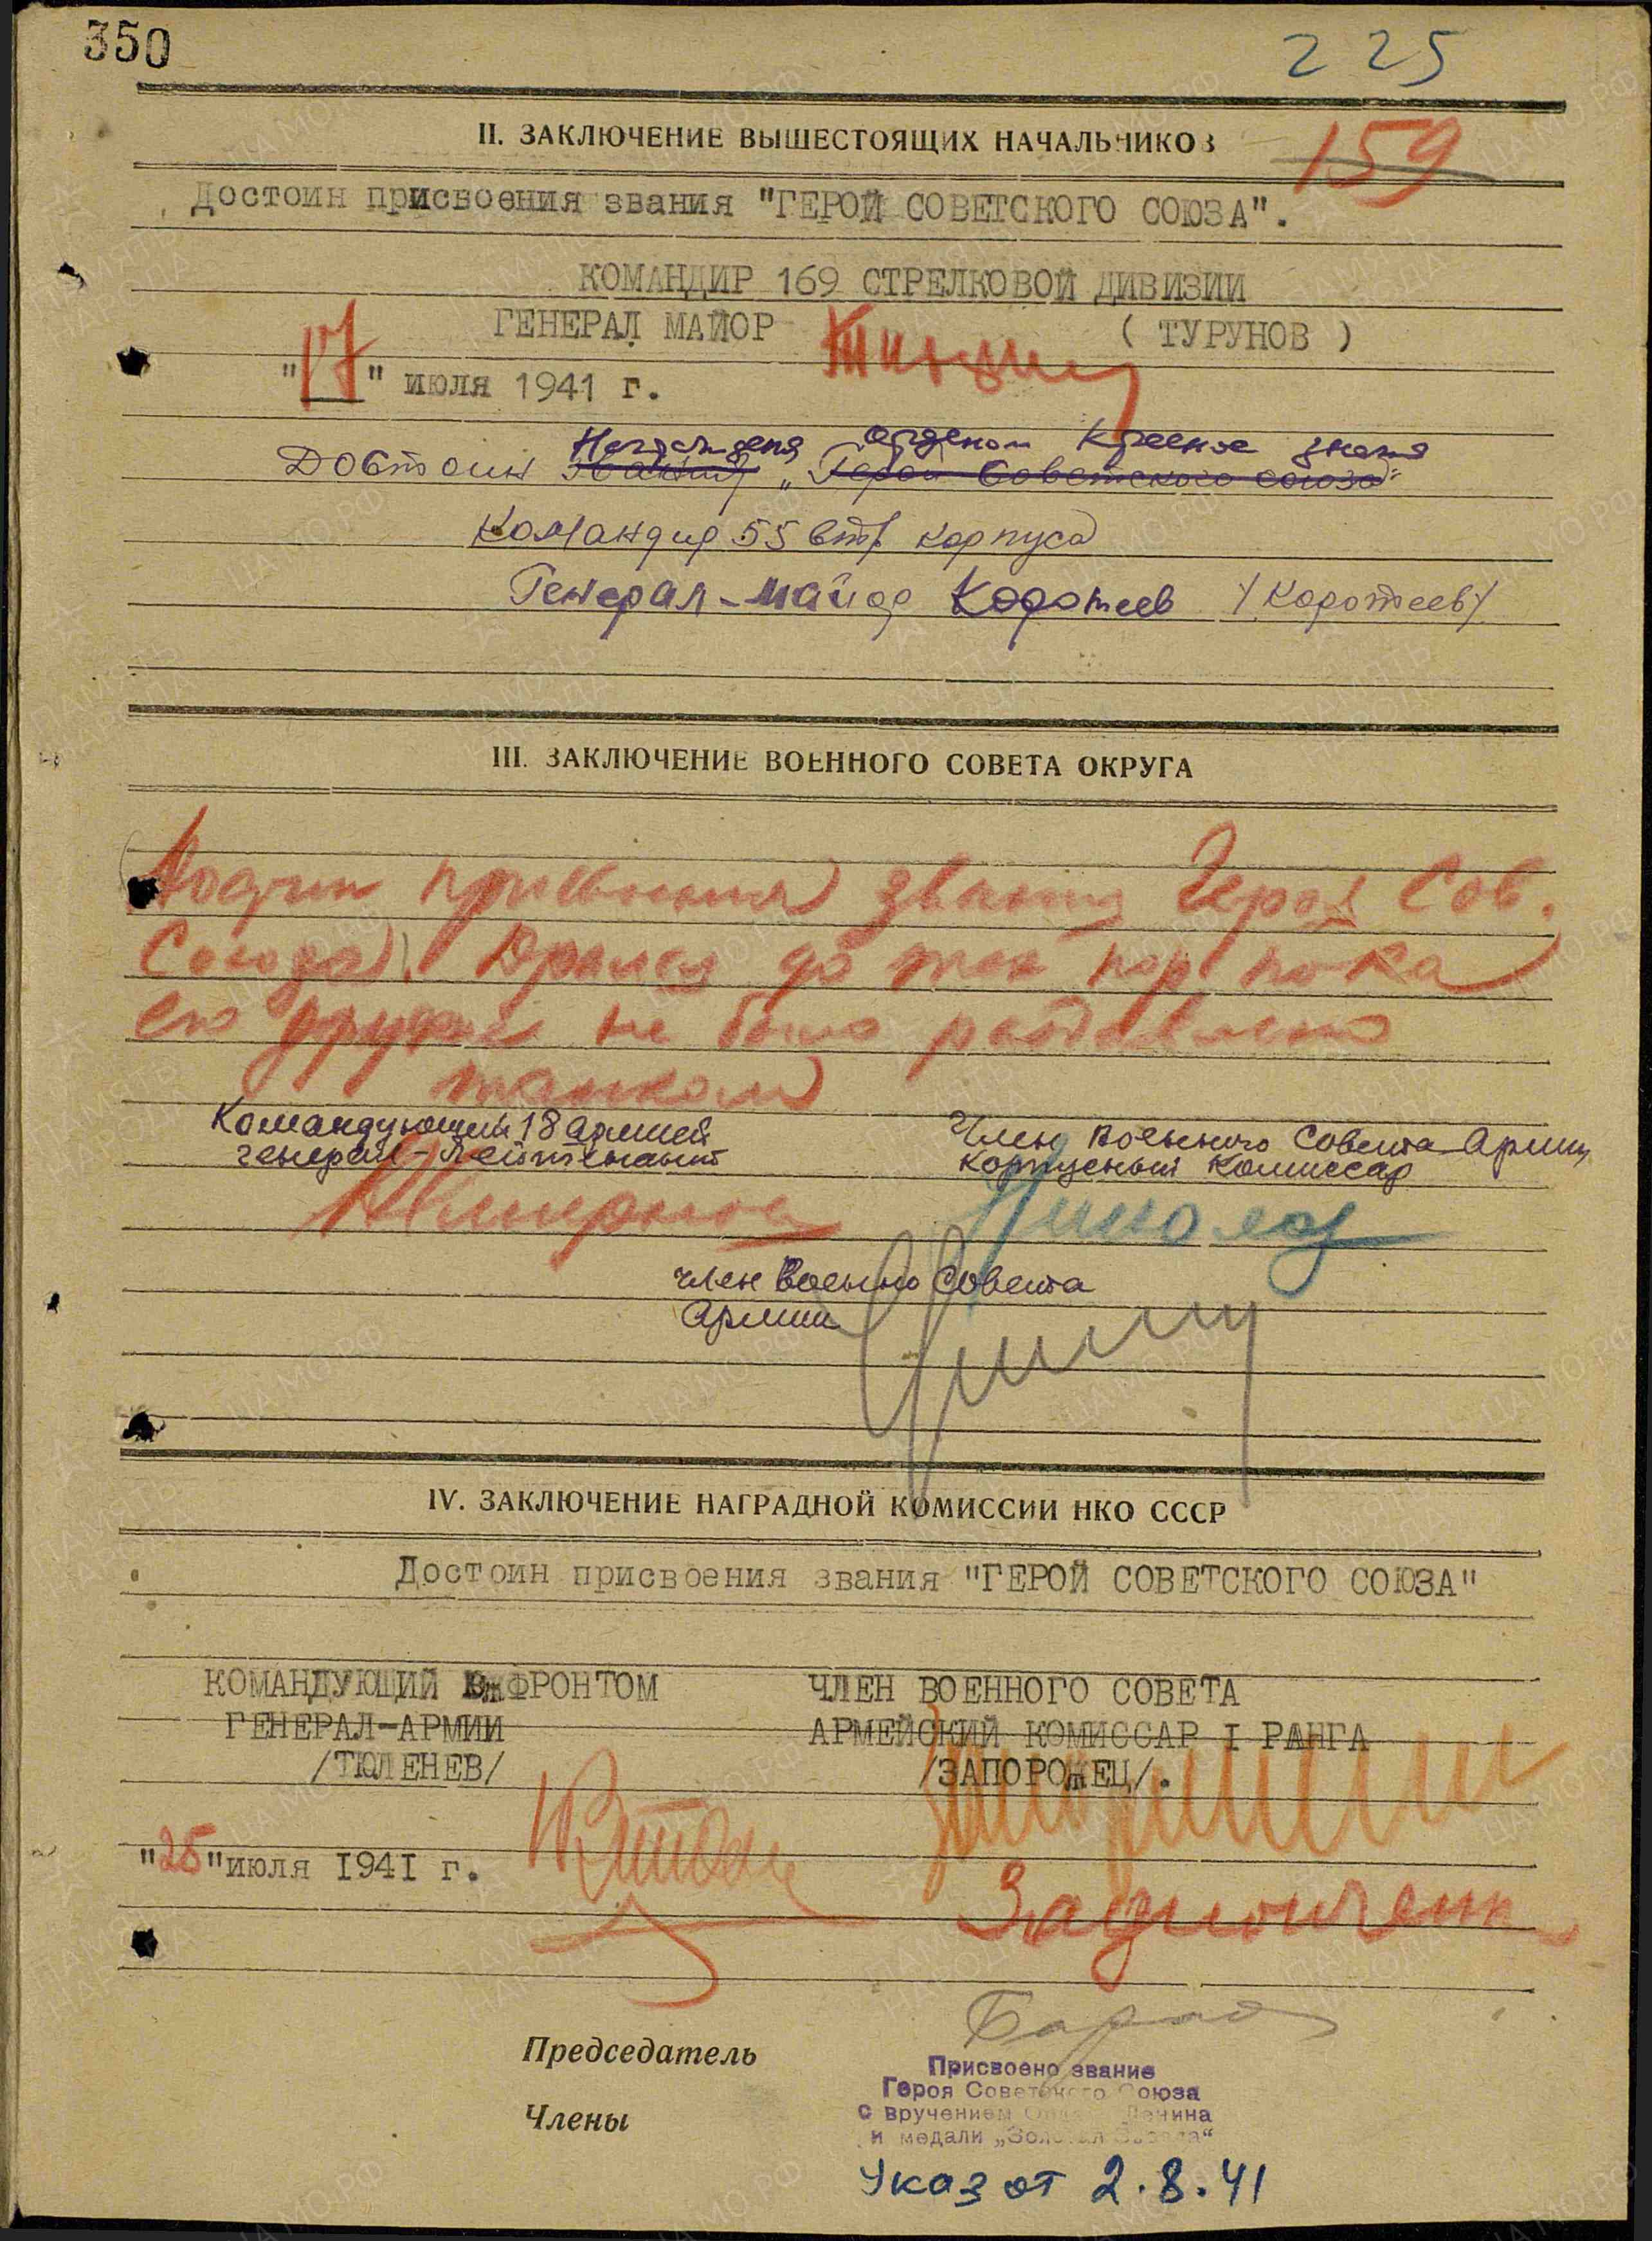 350
225
II. ЗАКЛЮЧЕНИЕ ВЫШЕСТОЯЩИХ НАЧАЛЬНИКОВ
159
Достоин присвоения звания "ГЕРОЙ СОВЕТСКОГО СОЮЗА".
КОМАНДИР 169 СТРЕЛКОВОЙ ДИВИЗИИ
ГЕНЕРАЛ МАЙОР ( ТУРУНОВ )
"17" июля 1941 г.
Награждения орденом Красное знамя
Достоин звания „Герой Советского союза"
Командир 55 стр. корпуса
Генерал-майор Коротеев /Коротеев/
III. ЗАКЛЮЧЕНИЕ ВОЕННОГО СОВЕТА ОКРУГА
Достоин присвоения звания Героя Сов.
Союза. Дрался до тех пор пока
его орудие не было раздавлено
танком
Командующий 18 армией
генерал-лейтенант
Член Военного Совета Армии
Корпусный Комиссар
член Военно Совета
Армии
IV. ЗАКЛЮЧЕНИЕ НАГРАДНОЙ КОМИССИИ НКО СССР
Достоин присвоения звания "ГЕРОЙ СОВЕТСКОГО СОЮЗА"
КОМАНДУЮЩИЙ ФРОНТОМ
ГЕНЕРАЛ-АРМИИ
/ТЮЛЕНЕВ/
ЧЛЕН ВОЕННОГО СОВЕТА
АРМЕЙСКИЙ КОМИССАР I РАНГА
/ЗАПОРОЖЕЦ/.
"25" июля 1941 г.
Задионченко
Председатель
Члены
Присвоено звание
Героя Советского Союза
с вручением Ордена Ленина
и медали „Золотая Звезда"
Указ от 2.8.41